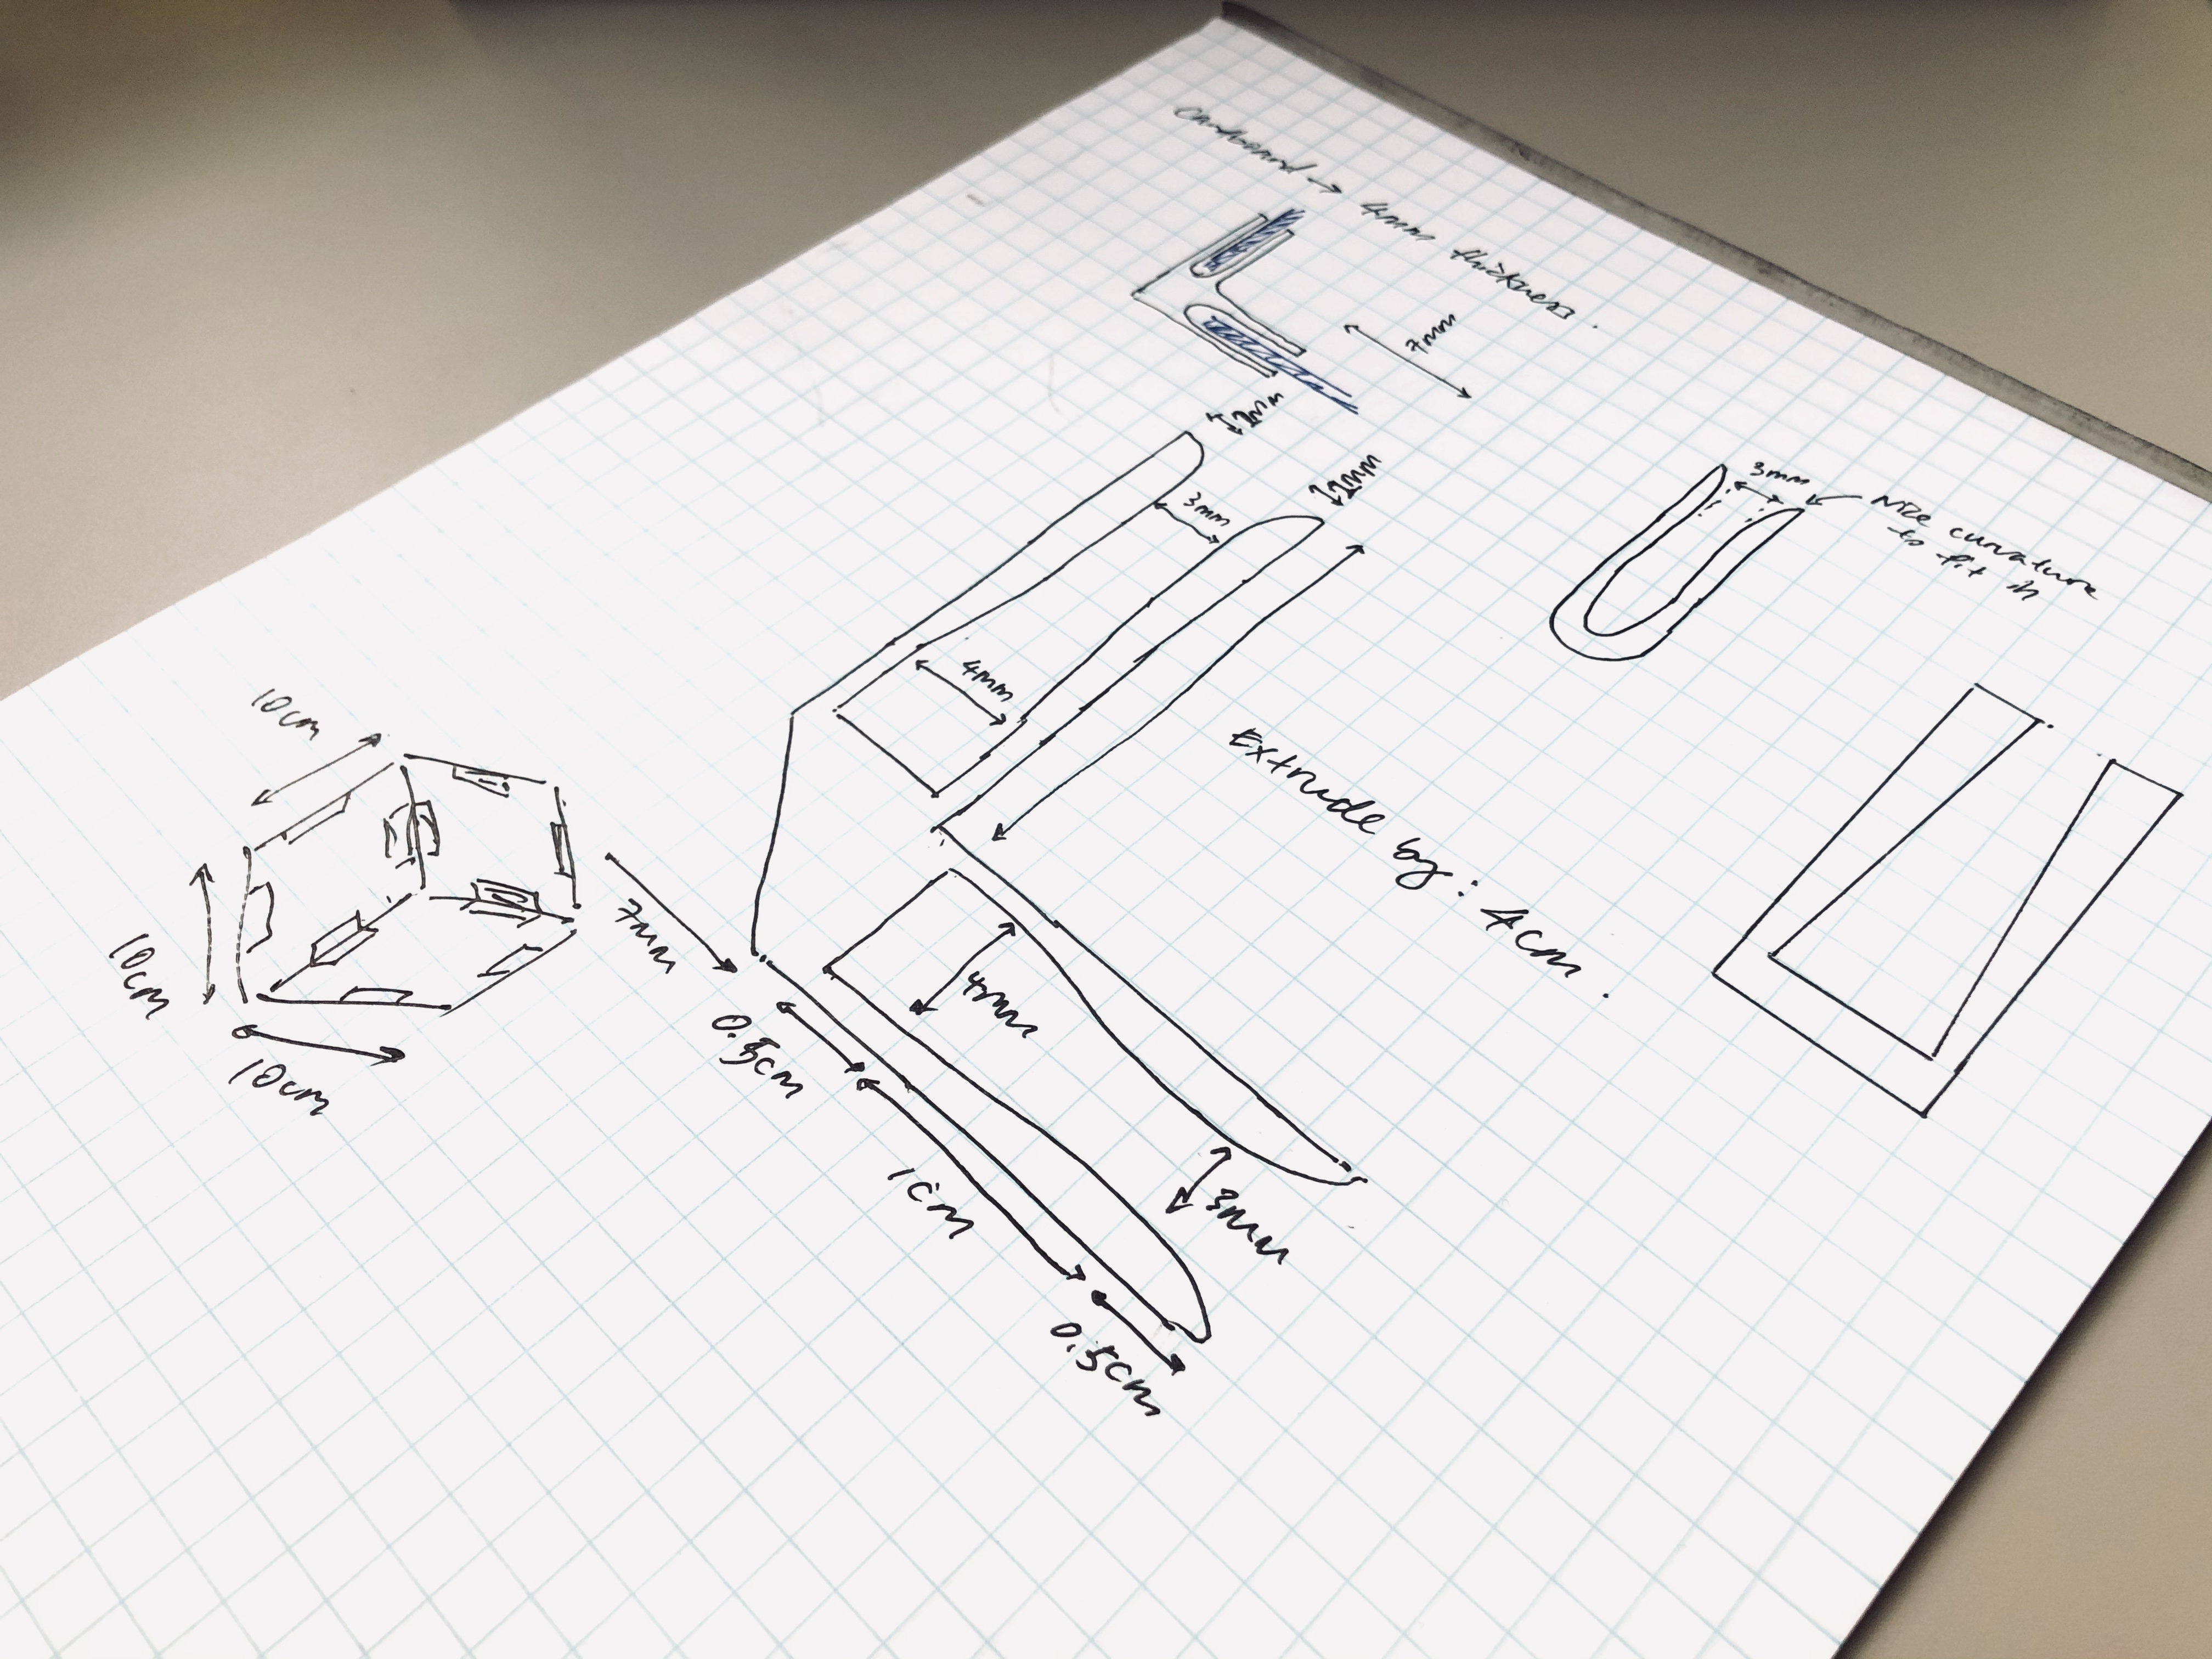 Cardboard → 4mm thickness.
7mm
3mm
3mm
Nice curvature
to fit in
4mm
Extrude by: 4cm.
10cm
10cm
10cm
7mm
4mm
0.5cm
1cm
3mm
0.5cm